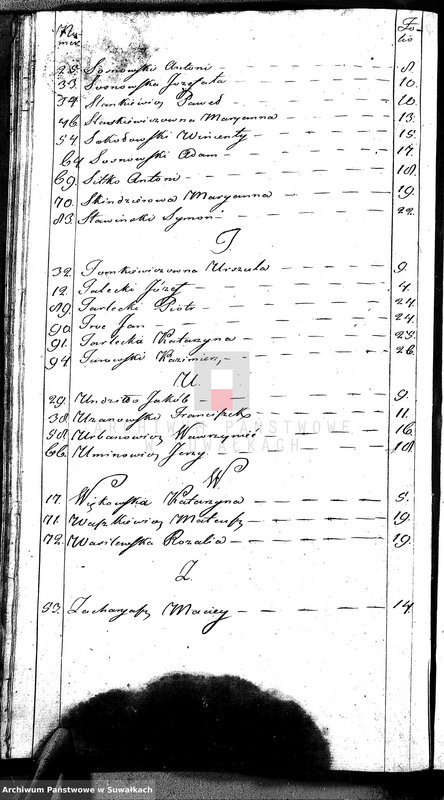 Nu Fo
mer lio
25. Sosnowski Antoni — — — — 8.
33. Sosnowska Jozefata — — — — 10.
34. Stankiewicz Paweł — — — — 10.
46. Stankiewiczowna Maryanna — — — 13.
54. Sokołowski Wincenty — — — — 15.
64. Sosnowski Adam — — — — 17.
69. Sitko Antoni — — — — 18.
70. Skindzierowa Maryanna — — — 19.
83. Sławinski Symon — — — — 22.
T.
32. Tomkiewiczowna Urszula — — — 9.
12. Talecki Józef — — — — 4.
89. Tarlecki Piotr — — — — 24.
90. Trve Jan — — — — 24.
91. Tarlecka Katarzyna — — — — 25.
94. Turowski Kazimierz — — — — 26.
U.
29. Undziłło Jakób — — — — 9.
38. Uzanowski Franciszek — — — 11.
58. Urbanowicz Wawrzyniec — — — 16.
66. Uminowicz Jerzy — — — — 18.
W
17. Więkowska Katarzyna — — — 5.
71. Waszkiewicz Mateusz — — — 19.
72. Wasilewska Rozalia — — — 19.
Z.
53. Zacharyasz Maciey — — — — 14.
ARCHIWUM PAŃSTWOWE
W SUWAŁKACH
Archiwum Państwowe w Suwałkach